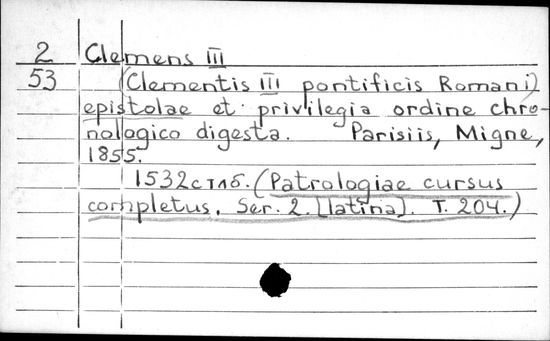 2 Clemens III
53 (Clementis III pontificis Romani)
epistolae et privilegia ordine chro-
nologico digesta. Parisiis, Migne,
1855.
1532 стлб. (Patrologiae cursus
completus. Ser. 2. [latina]. T. 204.)